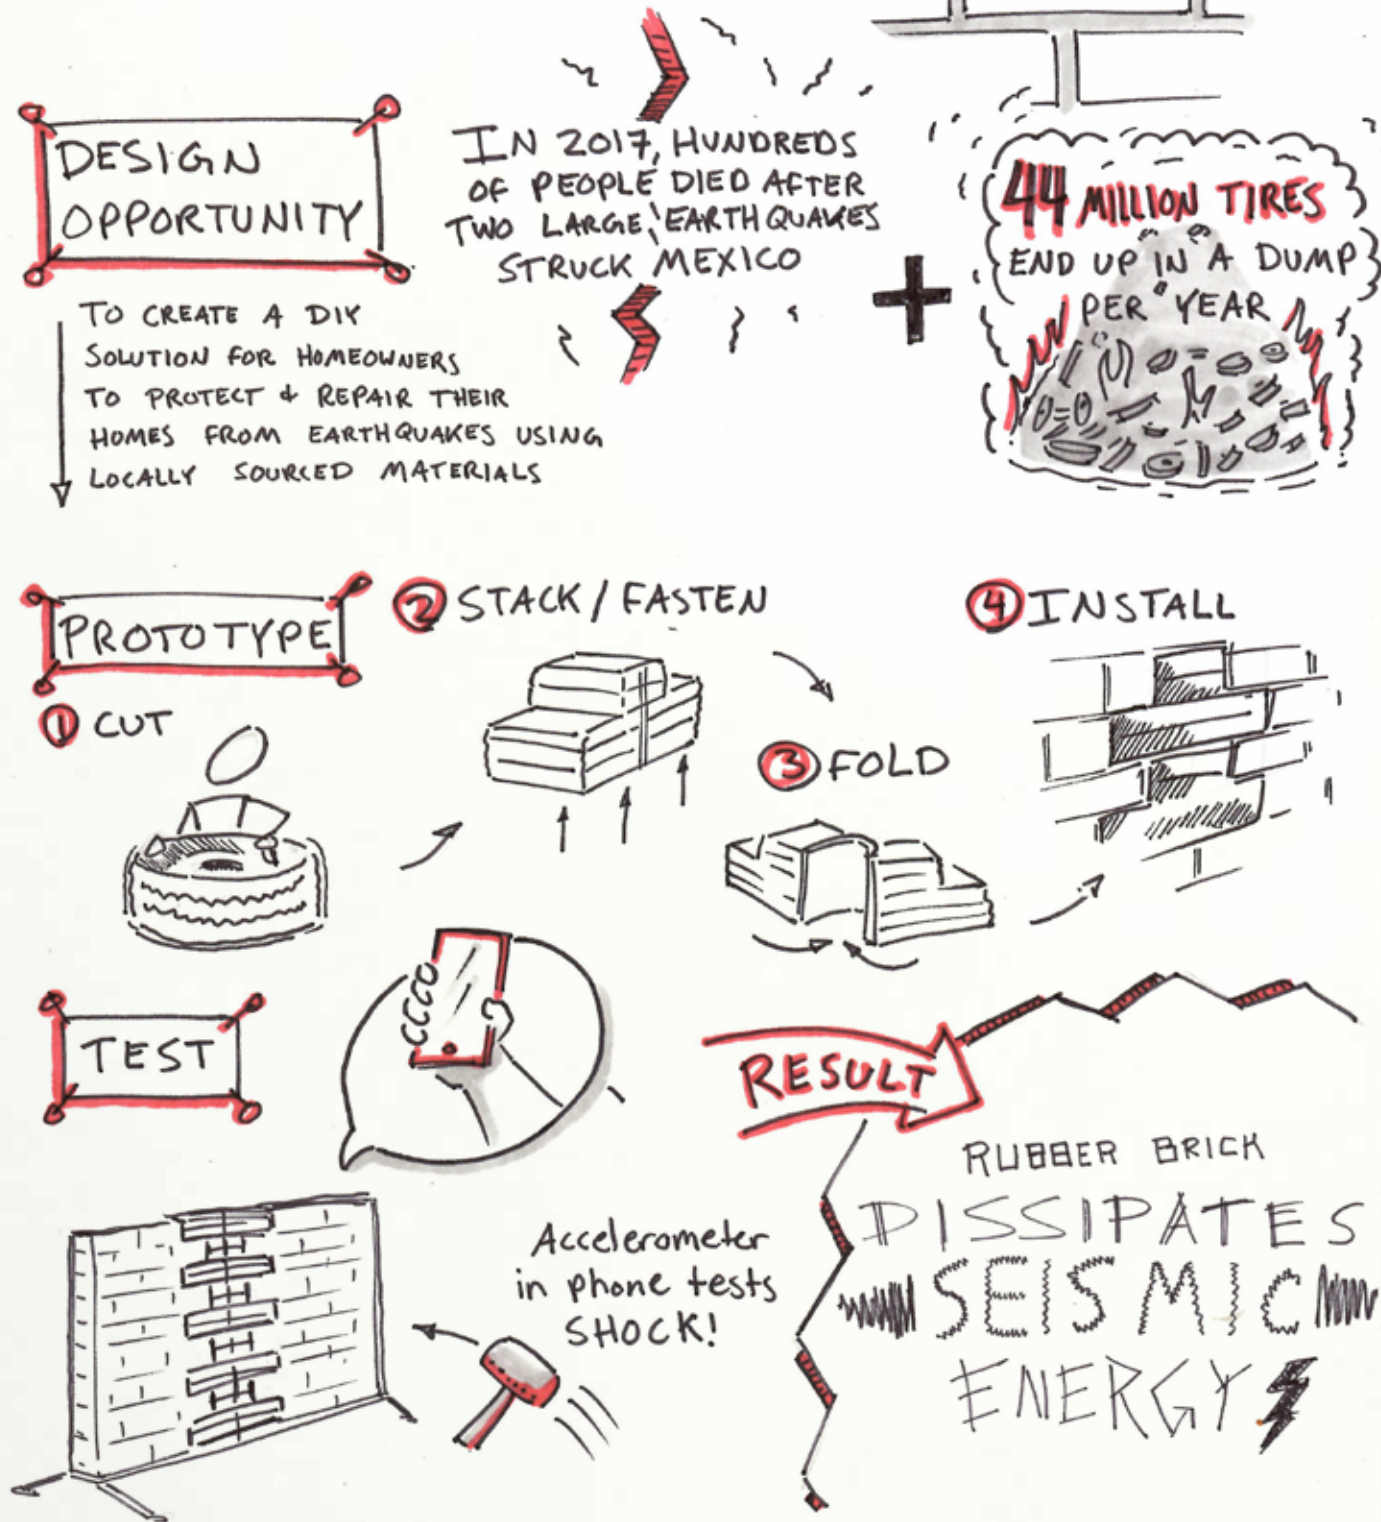 DESIGN
OPPORTUNITY
TO CREATE A DIY
SOLUTION FOR HOMEOWNERS
TO PROTECT & REPAIR THEIR
HOMES FROM EARTHQUAKES USING
LOCALLY SOURCED MATERIALS
IN 2017, HUNDREDS
OF PEOPLE DIED AFTER
TWO LARGE EARTHQUAKES
STRUCK MEXICO
+
44 MILLION TIRES
END UP IN A DUMP
PER YEAR
PROTOTYPE
1 CUT
2 STACK / FASTEN
3 FOLD
4 INSTALL
TEST
Accelerometer
in phone tests
SHOCK!
RESULT
RUBBER BRICK
DISSIPATES
SEISMIC
ENERGY